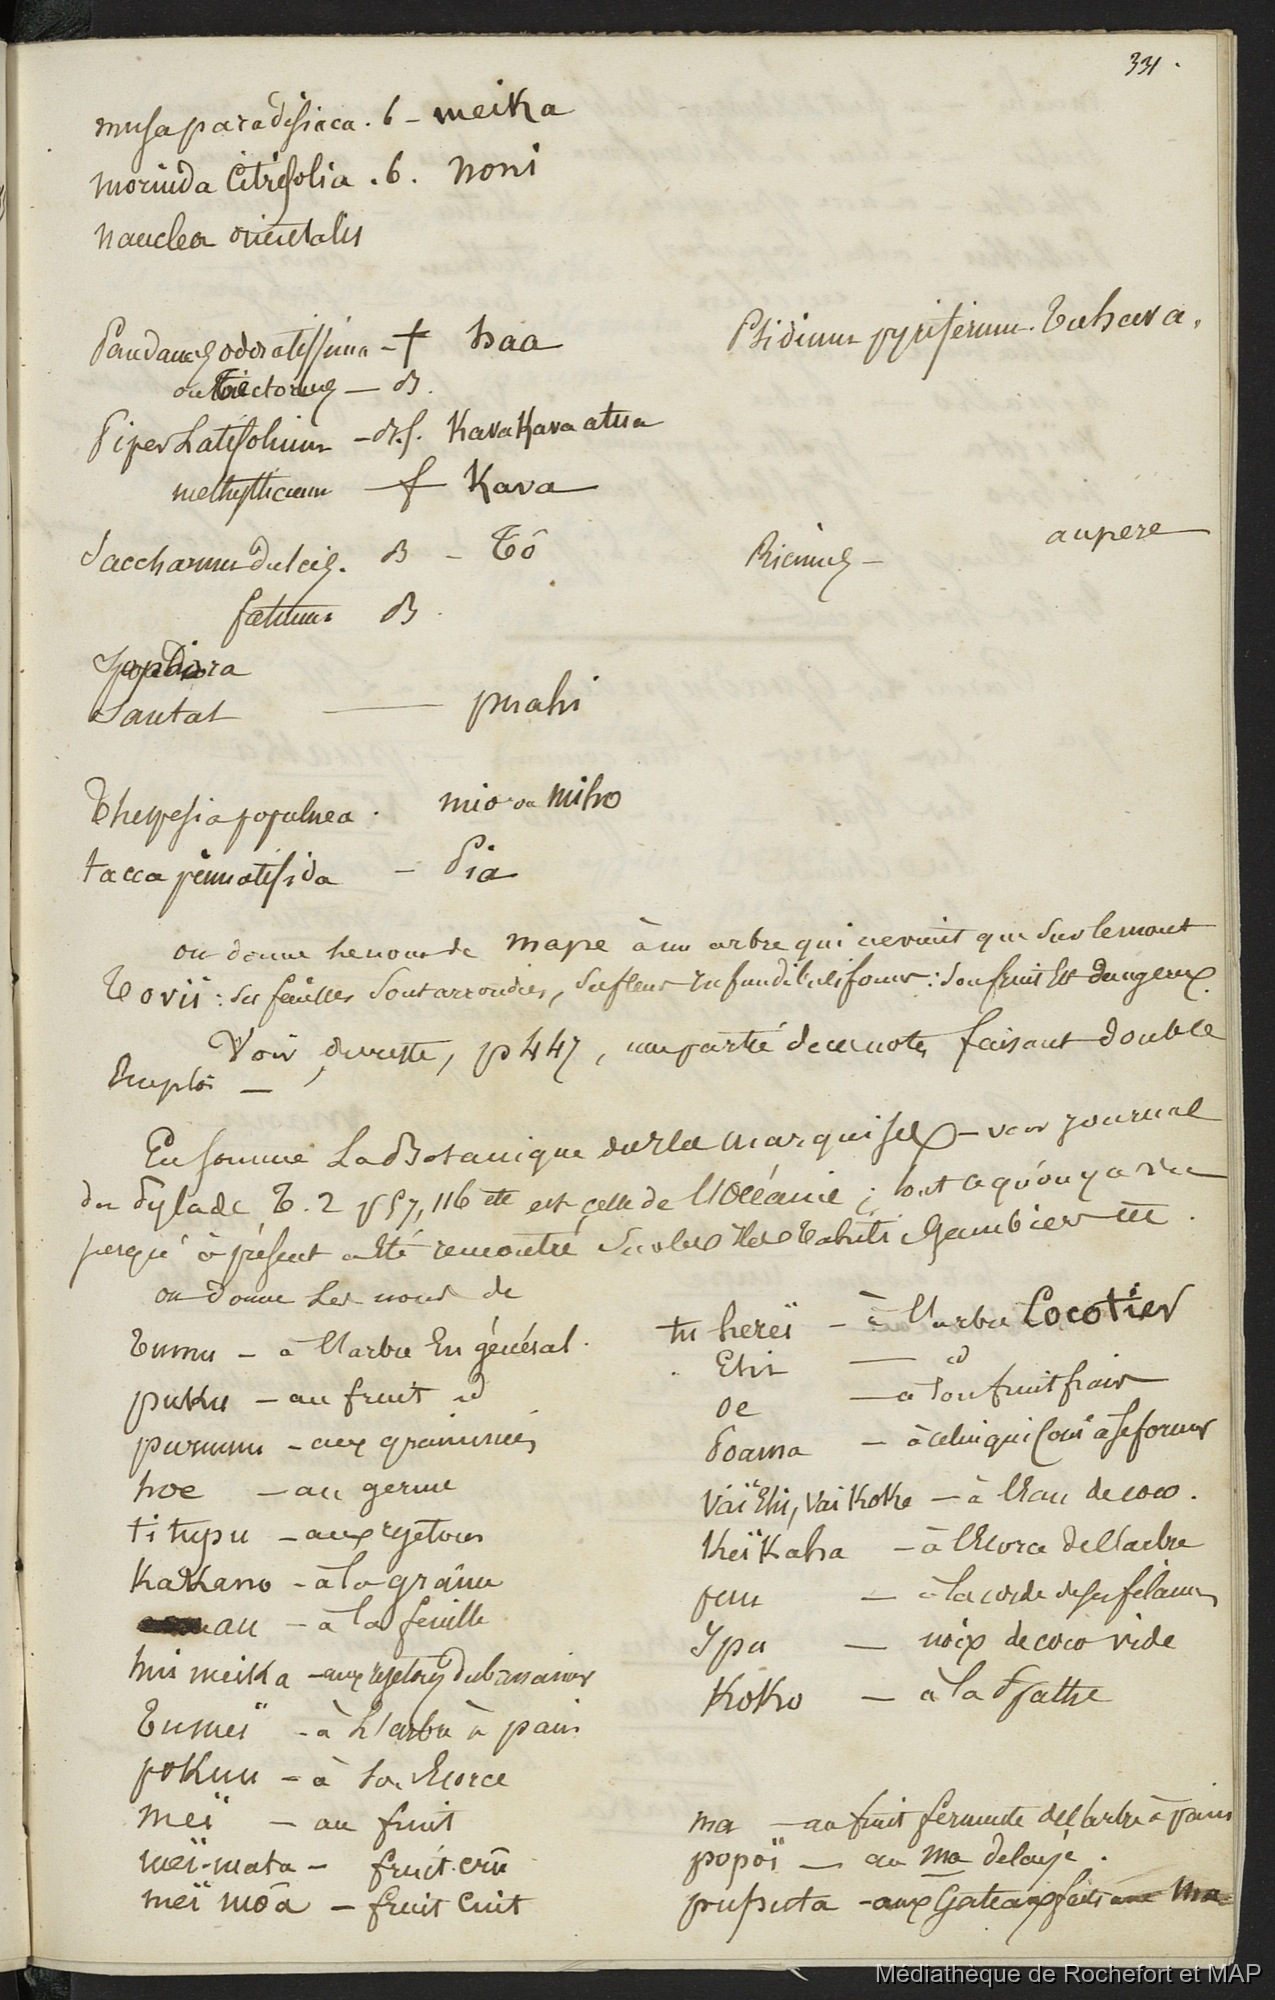 331.
musa paradisiaca. 6 - meika
morinda Citrifolia. 6. noni
nauclea orientalis
Pandanus odoratissima - † haa
Psidium pyriferum. Tuhava.
ou tectorius — B.
Piper Latifolium - B. f. Kava Kava atua
methysticum — f Kava
Saccharum dulcis. B - Tô
Ricinus -
aupere
fatuum B
Santal — puahi
Thespesia populnea. mio ou miho
tacca pinnatifida - Pia
on donne le nom de mape à un arbre qui ne vient que sur le mont
Tovii : ses feuilles sont arrondies, sa fleur infundibuliforme : son fruit est dangereux.
Voir, du reste, p 447, une partie de ces notes faisant double
Emploi —
En somme La Botanique des îles marquises - voir journal
du Pylade T. 2 p 57, 116 etc est celle de l'Océanie ; tout ce qu'on y a vu
jusqu'à présent a été rencontré sur les îles Tahiti Gambier etc.
on donne les noms de
Tumu - à l'arbre En général.
puku - au fruit id
pumumu - aux graminées
hoe - au germe
ti tupu - aux rejetons
KaKano - à la graine
au - à la feuille
hui meika - aux rejetons du bananier
Tumeï - à l'arbre à pain
pokuu - à son Ecorce
meï - au fruit
meï-mata - fruit crû
meï môa - fruit Cuit
tu hereï - à l'arbre Cocotier
Ehi — id
oe — à son fruit frais
Poama - à celui qui Come à se former
Vaï Ehi, Vai Koke - à l'Eau de coco.
Keï Kaha - à l'Ecorce de l'arbre
puu - à la corde de ses filamens
Ypu - noix de coco vide
KoKo - à la Spathe
ma - au fruit fermenté de l'arbre à pain
popoï - au ma delayé.
puputa - aux Gateaux faits avec ma
Médiathèque de Rochefort et MAP